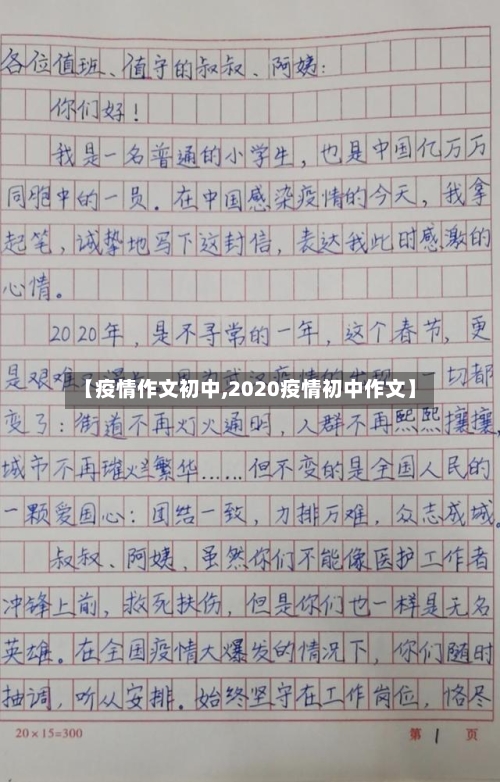 各位值班、值守的叔叔、阿姨:
你们好!
我是一名普通的小学生,也是中国亿万万
同胞中的一员。在中国感染疫情的今天,我拿
起笔,诚挚地写下这封信,表达我此时感激的
心情。
2020年,是不寻常的一年,这个春节,更
是艰难
一切都
【疫情作文初中,2020疫情初中作文】
变了:街道不再灯火通明,人群不再熙熙攘攘,
城市不再璀烂繁华……但不变的是全国人民的
一颗爱国心:团结一致,力排万难,众志成城。
叔叔、阿姨,虽然你们不能像医护工作者
冲锋上前,救死扶伤,但是你们也一样是无名
英雄。在全国疫情大爆发的情况下,你们随时
抽调,听从安排。始终坚守在工作岗位,恪尽
20×15=300
第 1 页